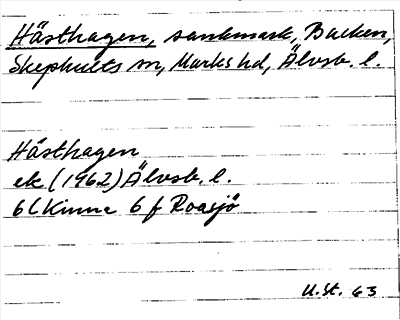 Hästhagen, sankmark, Backen,
Skephults sn, Marks hd, Älvsb. l.
Hästhagen
ek (1962) Älvsb. l.
6C Kinna 6 f Roasjö
U.St. 63